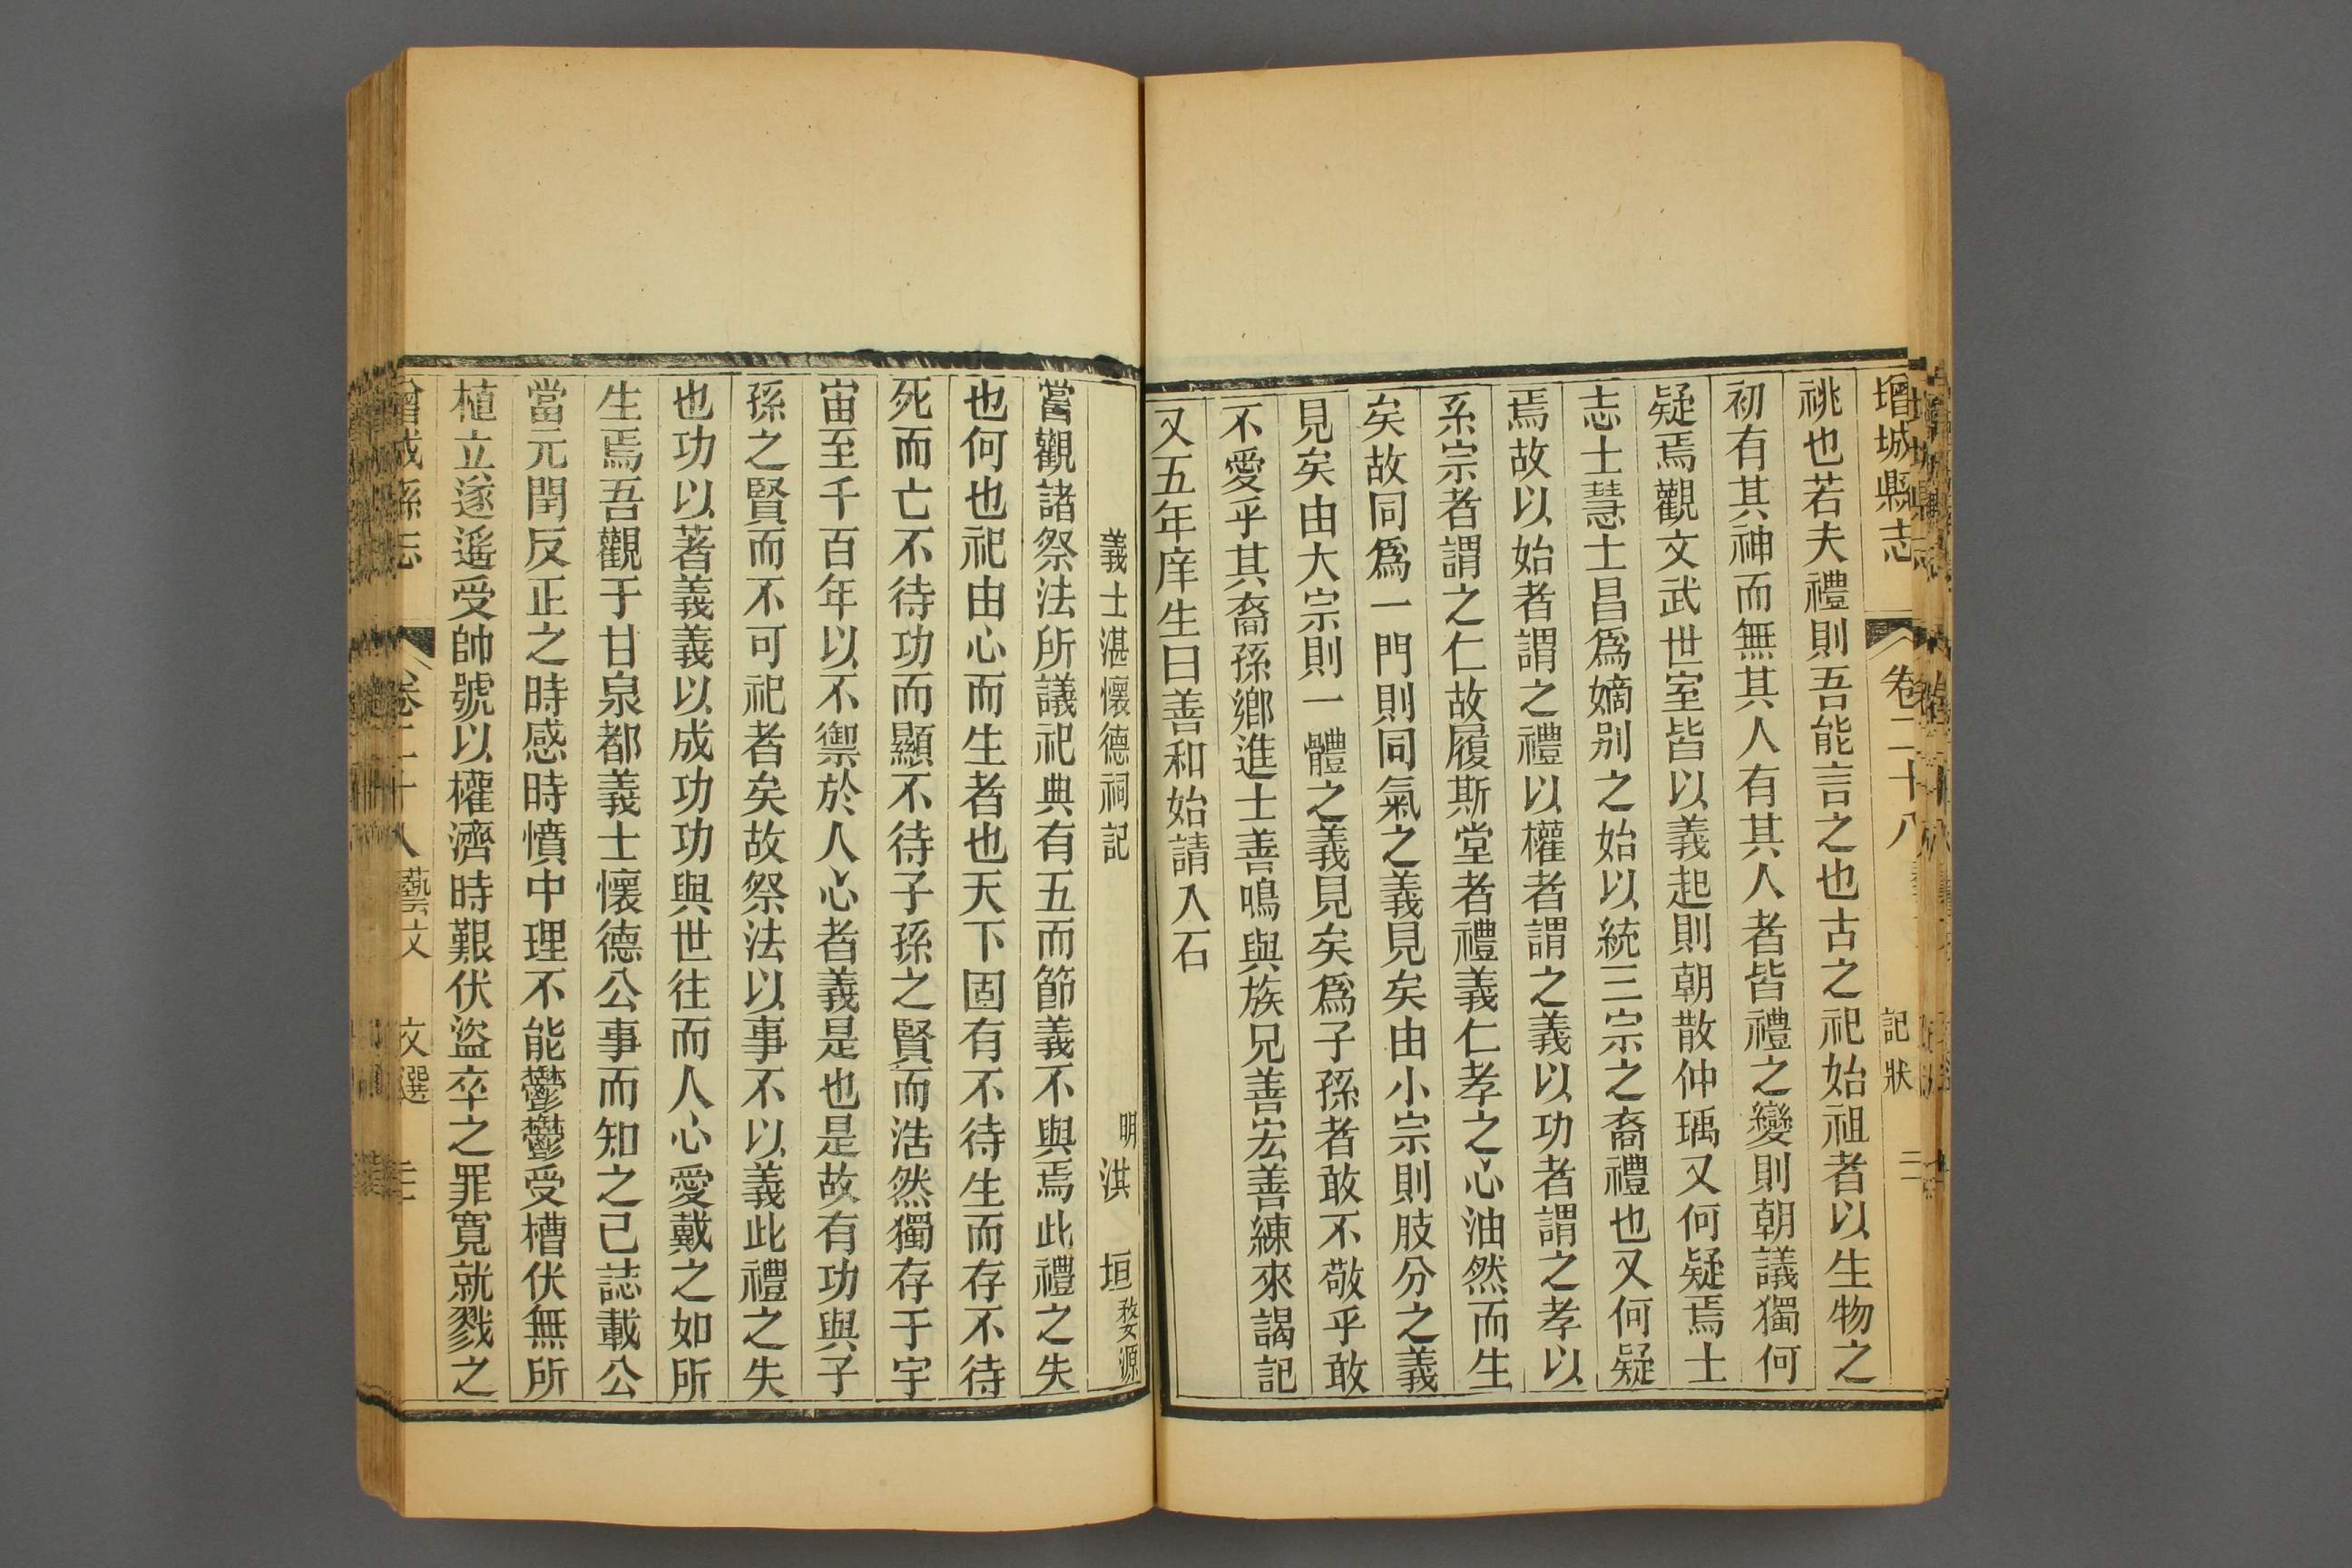 增城縣志 卷二十八 記狀
祧也若夫禮則吾能言之也古之祀始祖者以生物之
初有其神而無其人有其人者皆禮之變則朝議獨何
疑焉觀文武世室皆以義起則朝散仲瑀又何疑焉士
志士慧士昌爲嫡別之始以統三宗之裔禮也又何疑
焉故以始者謂之禮以權者謂之義以功者謂之孝以
系宗者謂之仁故履斯堂者禮義仁孝之心油然而生
矣故同爲一門則同氣之義見矣由小宗則肢分之義
見矣由大宗則一體之義見矣爲子孫者敢不敬乎敢
不愛乎其裔孫鄉進士善鳴與族兄善宏善練來謁記
又五年庠生曰善和始請入石
義士湛懷德祠記 明洪 垣婺源
嘗觀諸祭法所議祀典有五而節義不與焉此禮之失
也何也祀由心而生者也天下固有不待生而存不待
死而亡不待功而顯不待子孫之賢而浩然獨存于宇
宙至千百年以不禦於人心者義是也是故有功與子
孫之賢而不可祀者矣故祭法以事不以義此禮之失
也功以著義義以成功功與世往而人心愛戴之如所
生焉吾觀于甘泉都義士懷德公事而知之己誌載公
當元閏反正之時感時憤中理不能鬱鬱受槽伏無所
植立遂遙受帥號以權濟時艱伏盜卒之罪寬就戮之
增城縣志 卷二十八 藝文 文選